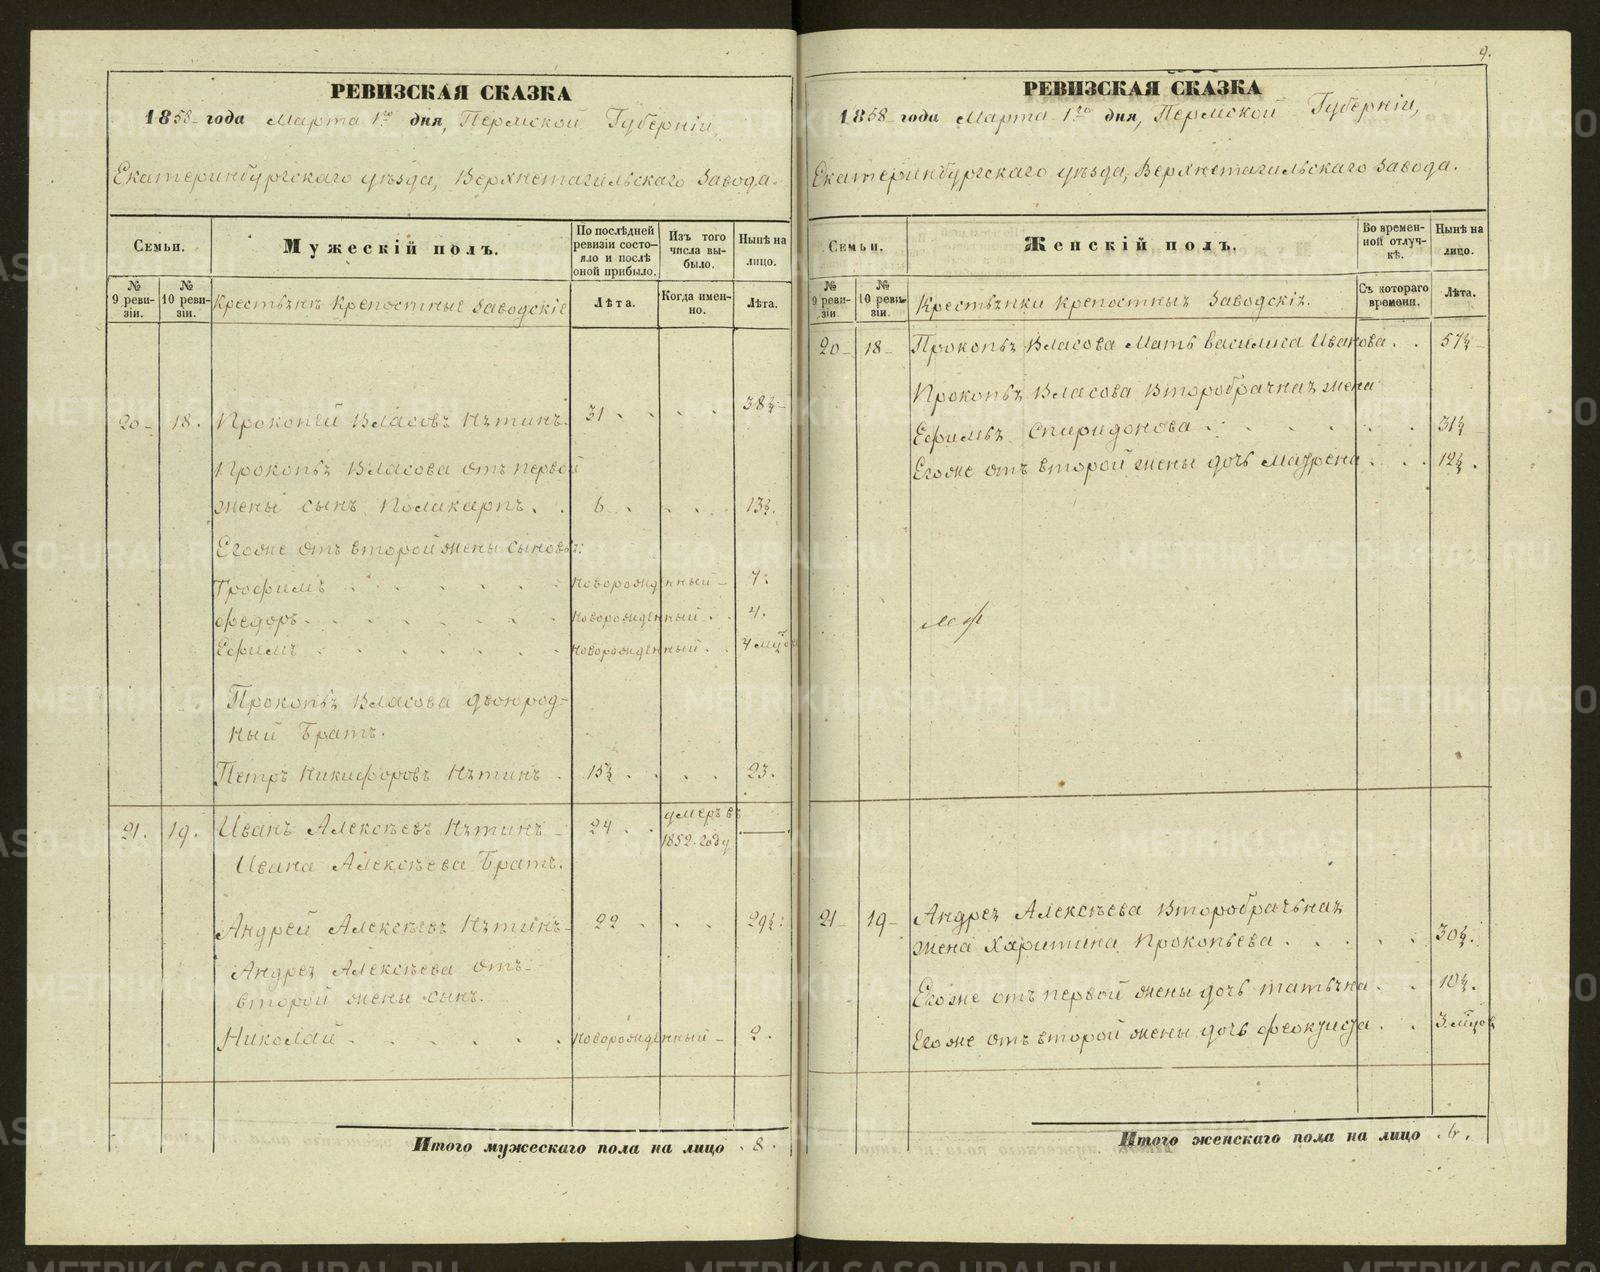 РЕВИЗСКАЯ СКАЗКА
1858 года Марта 1го дня, Пермской Губерніи,
Екатеринбургскаго уѣзда, Верхнетагильскаго Завода.
Семьи.
Мужескій полъ.
По послѣдней ревизіи состояло и послѣ оной прибыло.
Изъ того числа выбыло.
Нынѣ на лицо.
№ 9 ревизіи.
№ 10 ревизіи.
Крестьѣнъ крепостныѣ Заводскіѣ
Лѣта.
Когда именно.
Лѣта.
20 18. Прокопій Власовъ Нѣтинъ. 31 38½
Прокопьѣ Власова отъ первой
жены сынъ Поликарпъ. 6 13½.
Егоже отъ второй жены сыновьѣ:
Трофимъ Новорожденный 7.
Федоръ Новорожденный 4.
Ефимъ Новорожденный
Прокопьѣ Власова двоюрод-
ный Братъ.
Петръ Никифоровъ Нѣтинъ 15½ 23.
21. 19. Иванъ Алексѣевъ Нѣтинъ 24 умеръ въ 1852 году
Ивана Алексѣева Братъ.
Андрей Алексѣевъ Нѣтинъ 22 29½
Андреѣ Алексѣева отъ
второй жены сынъ.
Николай Новорожденный 2.
Итого мужескаго пола на лицо 8.
9.
РЕВИЗСКАЯ СКАЗКА
1858 года Марта 1го дня, Пермской Губерніи,
Екатеринбургскаго уѣзда, Верхнетагильскаго Завода.
Семьи.
Женскій полъ.
Во временной отлучкѣ.
Нынѣ на лицо.
№ 9 ревизіи
№ 10 ревизіи.
Крестьѣнки крепостныхъ Заводскіѣ.
Съ котораго времени.
Лѣта.
20 18 Прокопьѣ Власова Мать Василиса Иванова 57½
Прокопьѣ Власова Второбрачнаѣ жена
Ефимьѣ Спиридонова 31½
Егоже отъ второй жены дочь Маурена 12½.
21 19 Андреѣ Алексѣева Второбрачьнаѣ
жена Харитина Прокопьева 30½.
Егоже отъ первой жены дочь татьѣна 10½.
Егоже отъ второй жены дочь Феокуиста 3 мѣцов
Итого женскаго пола на лицо 6.
METRIKI.GASO-URAL.RU